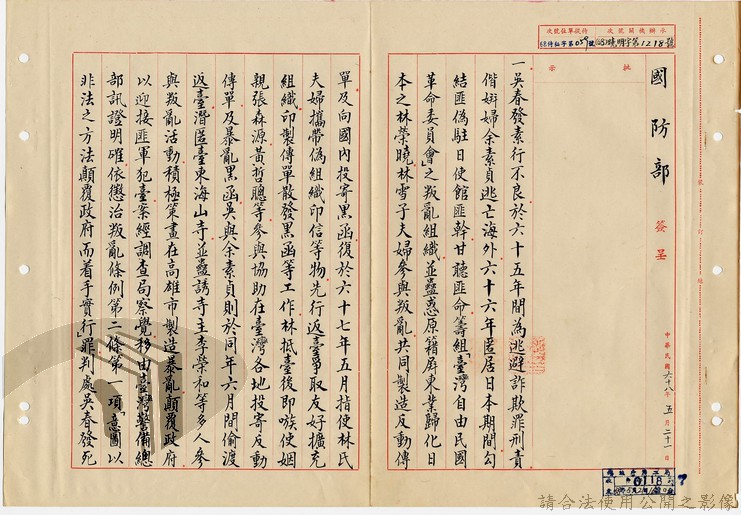 國防部 簽呈
中華民國六十八年五月二十一日
批示
一吳春發素行不良於六十五年間為逃避詐欺罪刑責
偕姘婦余素貞逃亡海外六十六年匿居日本期間勾
結匪偽駐日使館匪幹甘聽匪命籌組「臺灣自由民國
革命委員會」之叛亂組織並蠱惑原籍屏東業歸化日
本之林榮曉、林雪子夫婦參與叛亂共同製造反動傳
單及向國內投寄黑函復於六十七年五月指使林氏
夫婦攜帶偽組織印信等物先行返臺爭取友好擴充
組織印製傳單散發黑函等工作林抵臺後即唆使姻
親張森源黃哲聰等參與協助在臺灣各地投寄反動
傳單及暴亂黑函吳與余素貞則於同年六月間偷渡
返臺潛匿臺東海山寺並蠱誘寺主李榮和等多人參
與叛亂活動積極策畫在高雄市製造暴亂顛覆政府
以迎接匪軍犯臺案經調查局察覺移由臺灣警備總
部訊證明確依懲治叛亂條例第二條第一項「意圖以
非法之方法顛覆政府而着手實行」罪判處吳春發死
請合法使用公開之影像